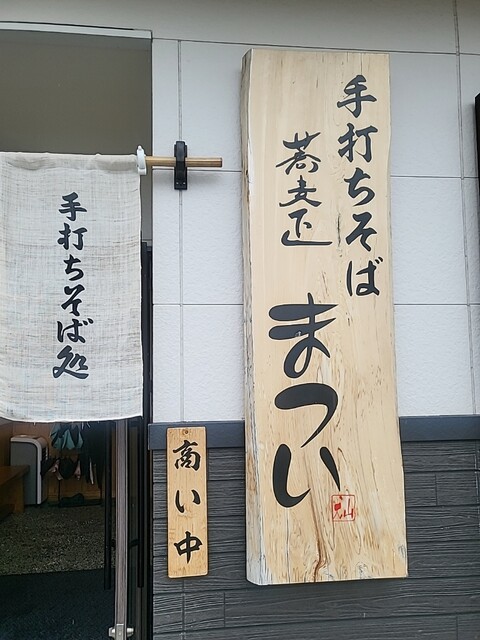 手打ちそば
蕎麦匠
まつい
手打ちそば処
商い中